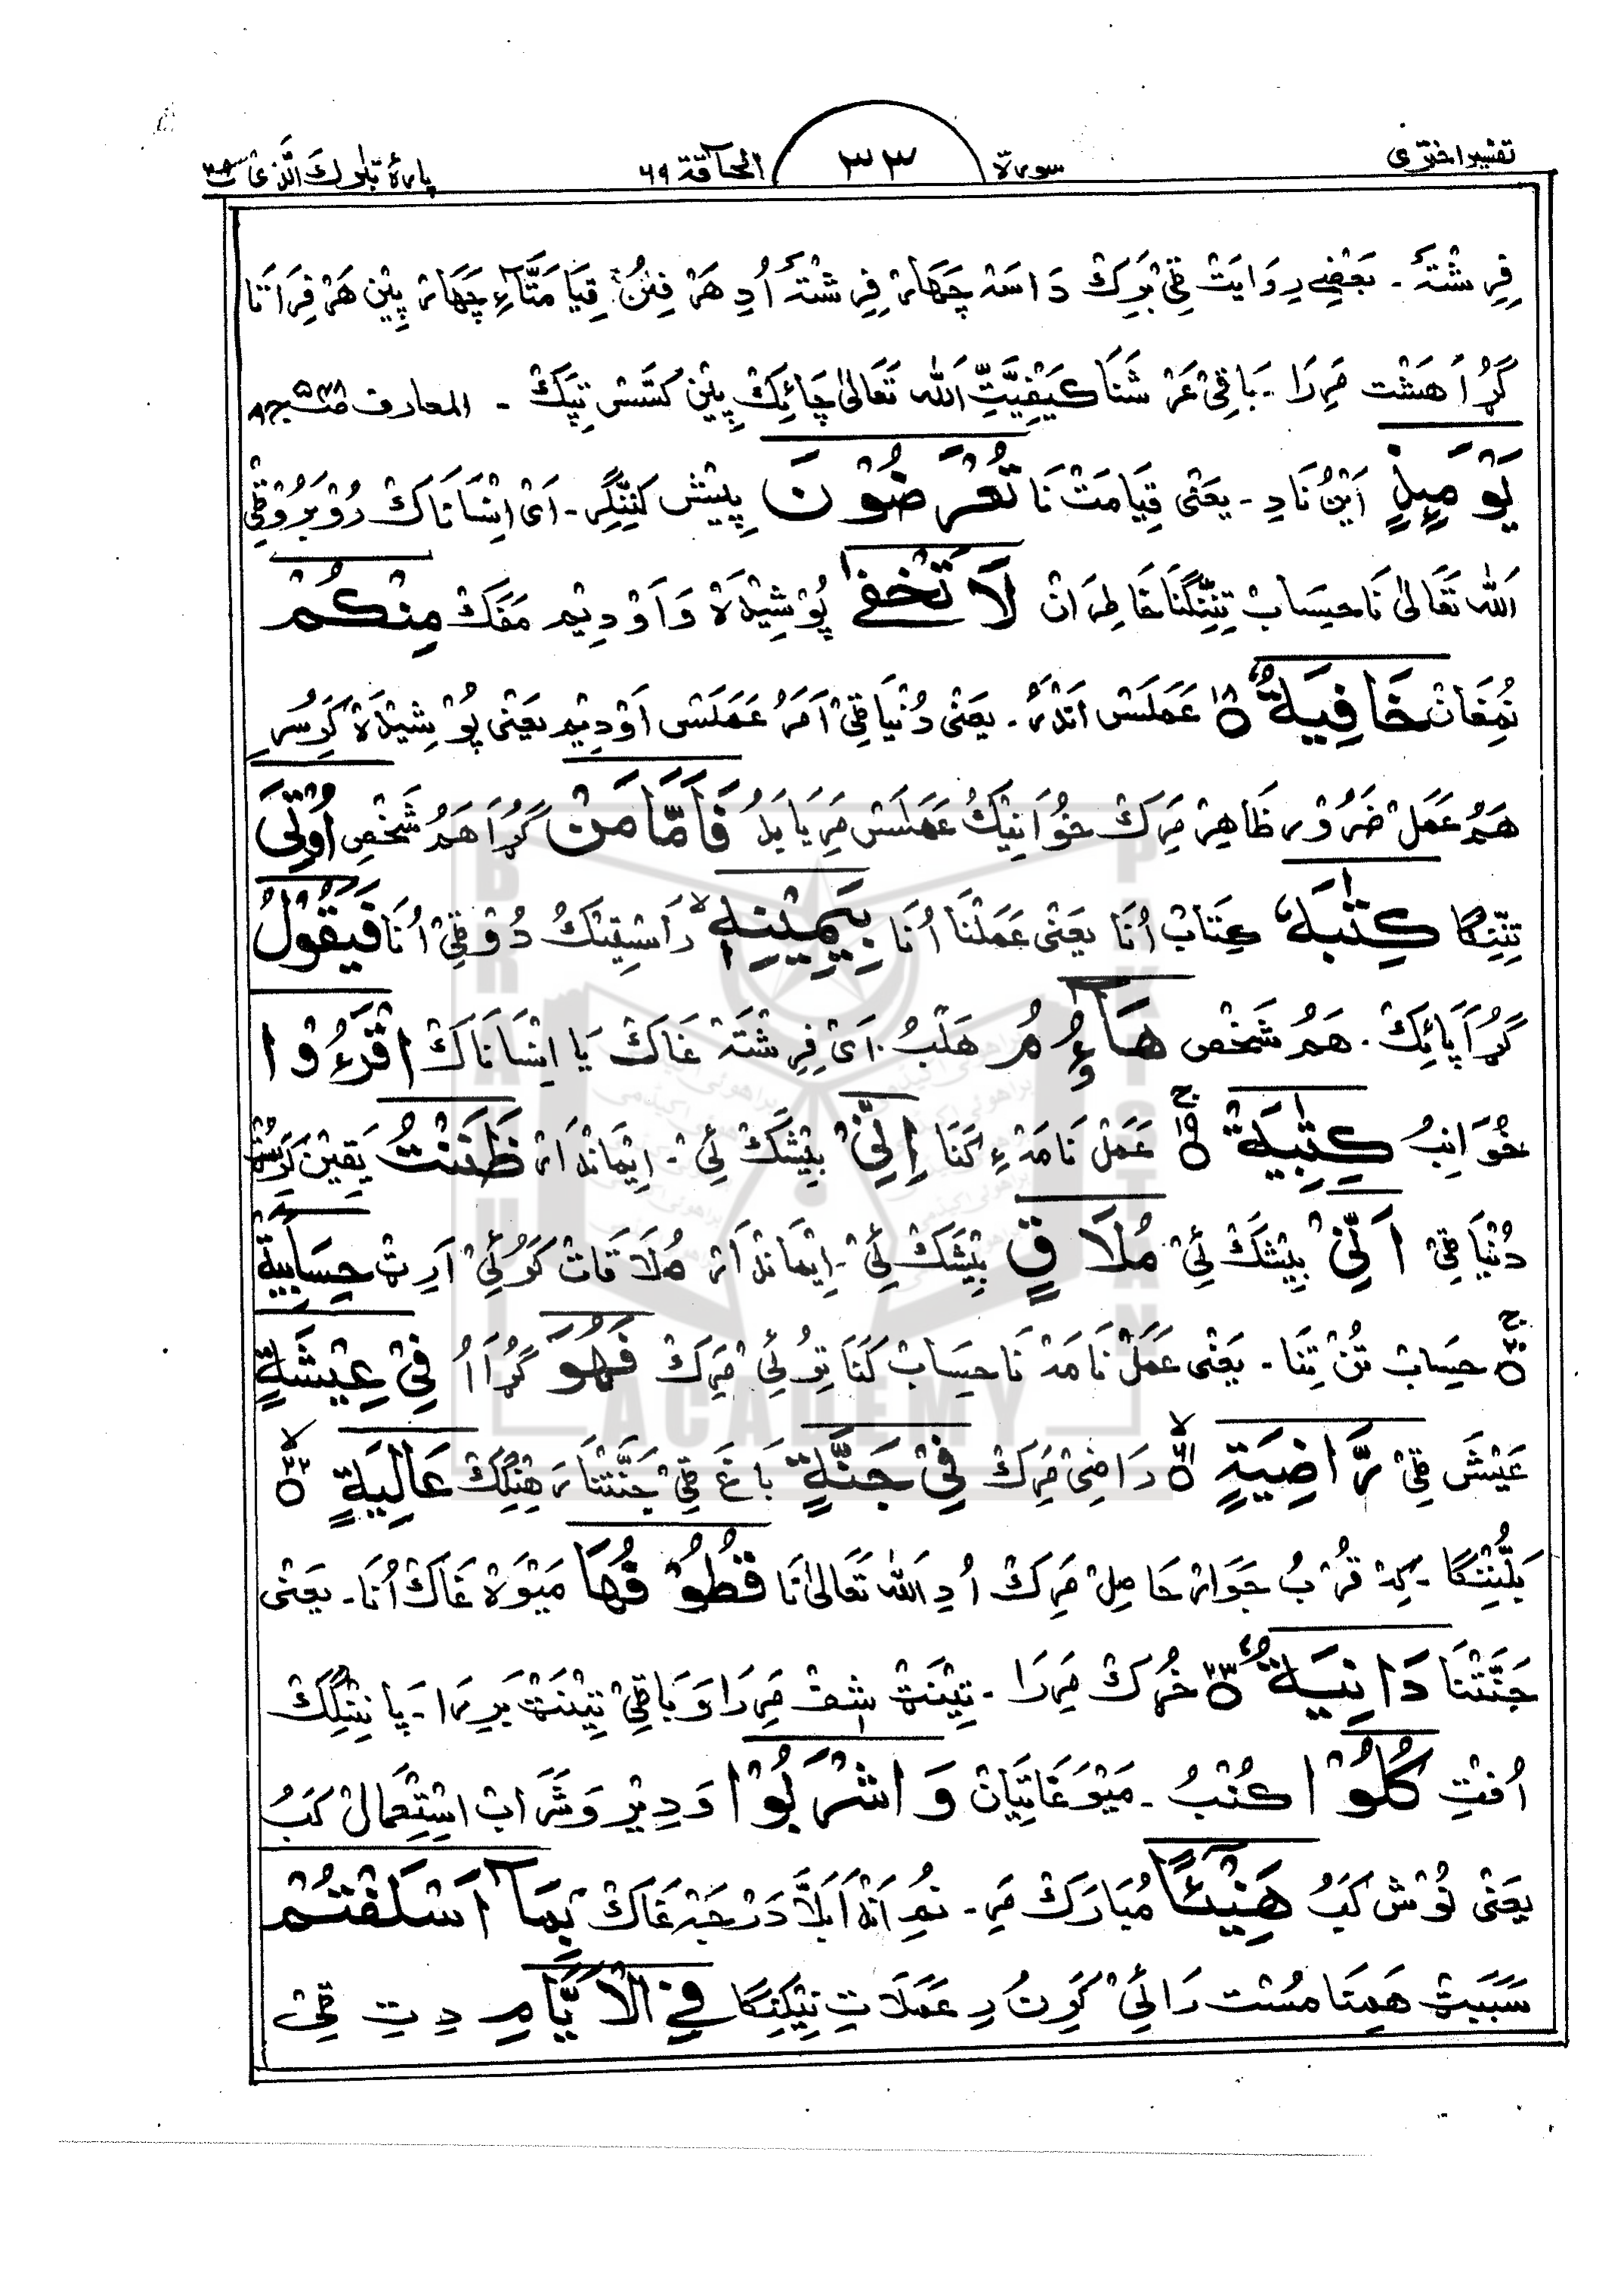 تفسیر اختری سورة ٣٣ الحآقة ٦٩ پارهٔ تبٰرك الّذی ٢٩
فِرِشْتَہ۔ بَعْضِے رِوَایَتْ ٹِیْ بَرِكْ دَاسَہ چَہَارْ فِرِشْتَہ اُدِ هَرْفِنُن قِیَامَتَّاءِ چَہَارْ پِیْن هَرْفِرَاتَا
گُڑَا هَشْت مَرِرَا۔ بَاقِیْ عَرْشَنَا كَیْفِیَّتِ اَللّٰه تَعَالٰی چَائِكْ پِیْن كَسَّسْ تِپَكْ ۔ المعارف
یَوْمَىِٕذٍ اَیْنُ نَادِ۔ یَعْنٰی قِیَامَتْ نَا تُعْرَضُوْنَ پِیْش كَنِنِّگِرِ۔ اَیْ اِنْسَانَاكْ رُوْبَرُوْ ٹِیْ
اَللّٰه تَعَالٰی نَا حِسَابْ تِنِنِّگنَا خَاطِرَانْ لَا تَخْفٰی پُوْشِیْدَهْ وَ اَوْدِیْم مَفَكْ مِنْكُمْ
نُمِغَانْ خَافِیَةٌ ١٨ عَمَلَسْ اَنْدَر۔ یَعْنٰی دُنْیَا ٹِیْ اَمَرُ عَمَلَسْ اَوْدِیْم یَعْنٰی پُوْشِیْدَهْ كَرِسُر
هَمُ عَمَلْ ضَرُوْر ظَاهِرْ مَرِكْ خُوَانِیْكْ عَمَلَسْ مَرِ یَا بَدُ فَاَمَّا مَنْ گُڑَا هَمُ شَخْصِ اُوْتِیَ
تِنِنْگَا كِتٰبَهٗ كِتَابْ اُنَا یَعْنٰی عَمَلْنَا اُنَا بِیَمِیْنِهٖ رَاسْتِیْكُ دُوْ ٹِیْ اُنَا فَیَقُوْلُ
گُڑَا پَائِكْ۔ هَمُ شَخْص هَآؤُمُ هَلْبُ۔ اَیْ فِرِشْتَهْ غَاكْ یَا اِنْسَانَاكْ اقْرَءُوْا
خُوَانِبُ كِتٰبِیَهْ ١٩ عَمَلْ نَامَهْءِ كَنَا اِنِّیْ بِیْشَكْ ئِیْ ۔ اِیْمَانْدَارْ ظَنَنْتُ یَقِیْن كَرِیْسُٹ
دُنْیَا ٹِیْ اَنِّیْ بِیْشَكْ ئِیْ مُلَاقٍ بِیْشَكْ ئِیْ۔ اِیْمَانْدَارْ مُلَاقَاتْ كَرُوْئِیْ اَرِٹْ حِسَابِیَهْ
٢٠ حِسَابْ تُنْ تِنَا۔ یَعْنٰی عَمَلْ نَامَهْ نَا حِسَابْ كَنَا تِرُئِیْ مَرِكْ فَهُوَ گُڑَا اُ فِیْ عِیْشَةٍ
عَیْشَ ٹِیْ رَّاضِیَةٍ ٢١ رَاضِیْ مَرِكْ فِیْ جَنَّةٍ بَاغَ ٹِیْ جَنَّتْنَا رَهِنْگِكْ عَالِیَةٍ ٢٢
بَلُّنِنْگَا۔ كِہْ قُرْبُ جَوَارْ حَاصِلْ مَرِكْ اُدِ اَللّٰه تَعَالٰی نَا قُطُوْفُهَا مَیْوَهْ غَاكْ اُنَا۔ یَعْنٰی
جَنَّتْنَا دَانِیَةٌ ٢٣ خُرُكْ مَرِرَا۔ تِیْنَتْ شِفْ مَرِرَا وَ بَاقِیْ تِیْنَتْ بَرِرَا۔ پَانِنْگِكْ
اُفْتِ كُلُوْا كُنْبُ۔ مَیْوَغَاتِیَانْ وَاشْرَبُوْا وَ دِیْر وَ شَرَابْ اِسْتِعْمَالْ كَبُ
یَعْنٰی نُوْش كَبُ هَنِیْٓئًۢا مُبَارَكْ مَرِ۔ نُمِ اَنْدَا بَلَّا دَرْجَہْ غَاكْ بِمَآ اَسْلَفْتُمْ
سَبَبَٹْ هَمِتَا مُسْت رَائِیْ كَرِنُ رِ عَمَلَاتِ نِیْكَنْگَا فِی الْاَیَّامِ دِتِ ٹِیْ